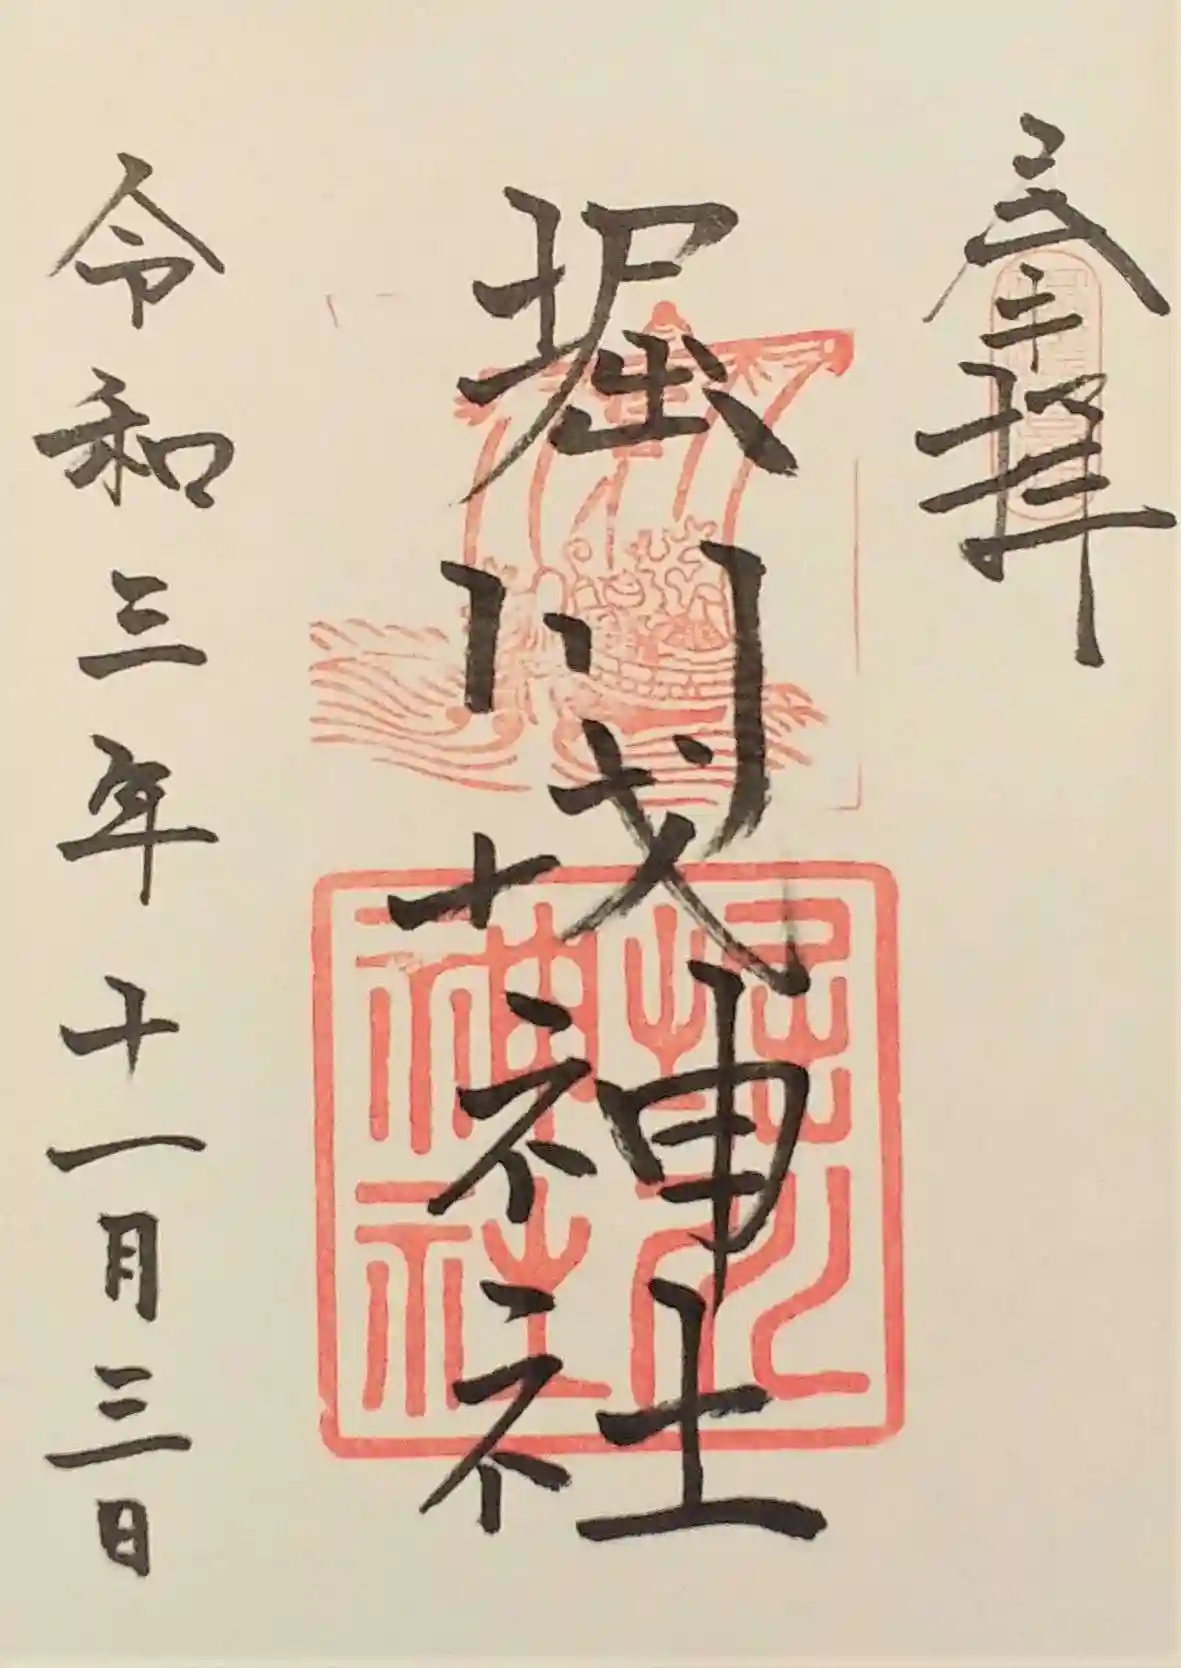 奉拝
堀川戎神社
令和三年十一月三日
堀川
神社